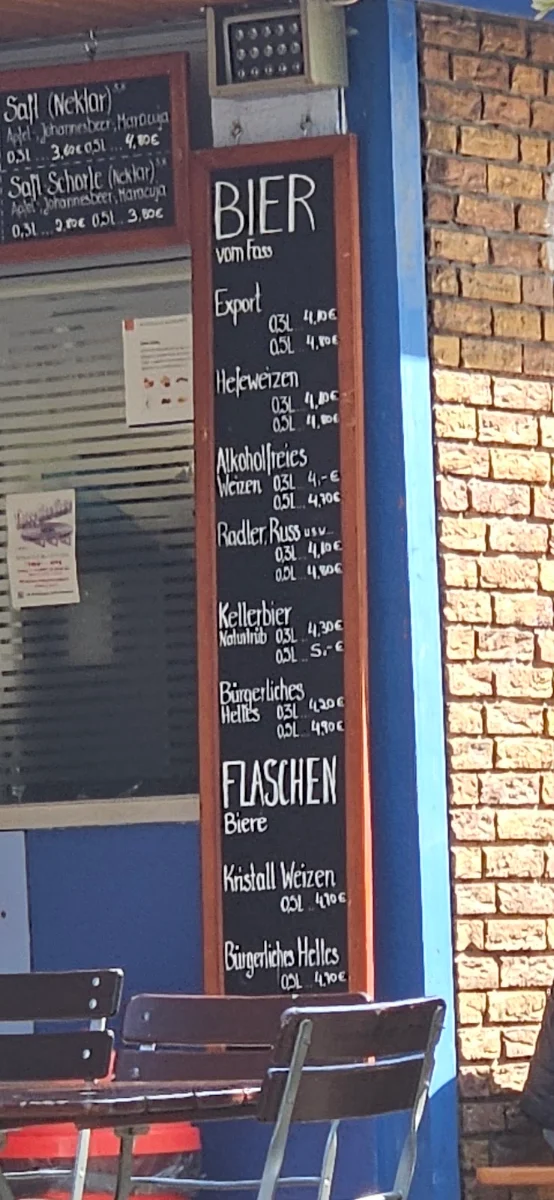 Saft (Nektar)
Apfel-, Johannesbeer, Maracuja
0,3L ... 3,60€ 0,5L ... 4,80€
Saft Schorle (Nektar)
Apfel-, Johannesbeer, Maracuja
0,3L ... 2,80€ 0,5L .. 3,80€
BIER
vom Fass
Export
0,3L 4,10€
0,5L .. 4,80€
Hefeweizen
0,3L .. 4,10€
0,5L .. 4,80€
Alkoholfreies
Weizen 0,3L 4,-€
0,5L .. 4,70€
Radler, Russ usw...
0,3L .. 4,10€
0,5L .. 4,80€
Kellerbier
Naturtrüb 0,3L 4,30€
0,5L .. 5,-€
Bürgerliches
Helles 0,3L .. 4,20€
0,5L .. 4,90€
FLASCHEN
Biere
Kristall Weizen
0,5L .. 4,70€
Bürgerliches Helles
0,5L .. 4,70€